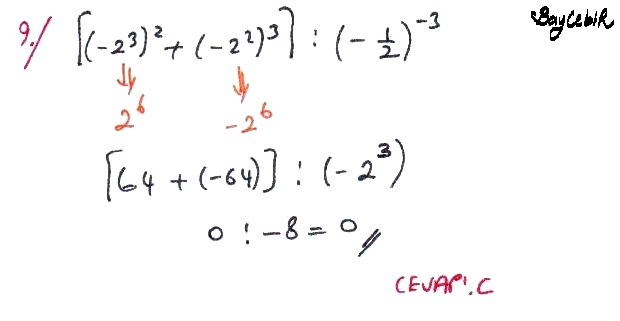 9./ [(-2³)² + (-2²)³] : (-1/2)⁻³
BayCebiR
2⁶ -2⁶
[64 + (-64)] : (-2³)
0 : -8 = 0//
CEVAP: C